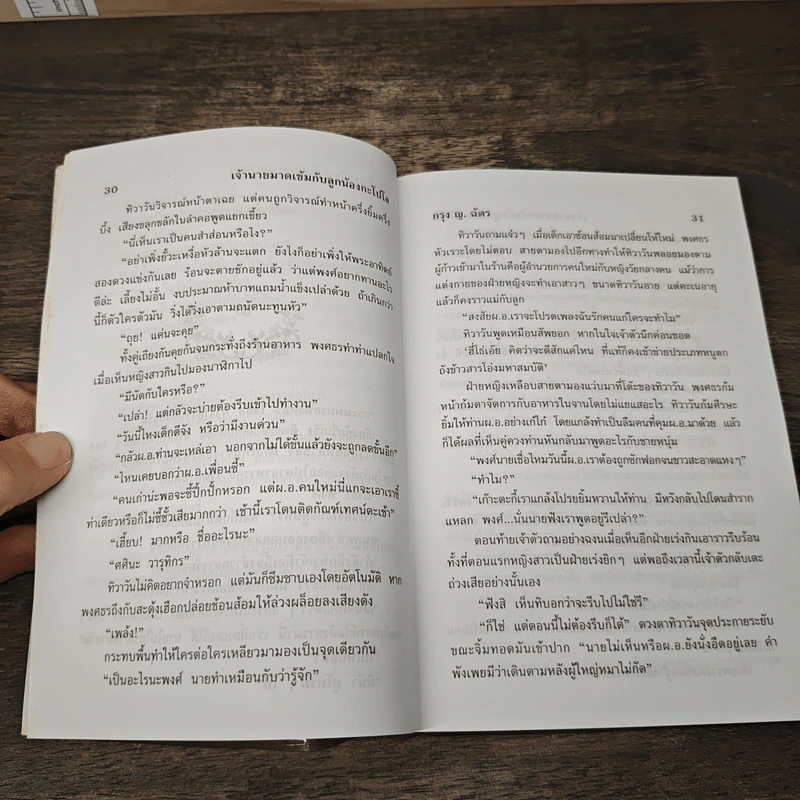 30
เจ้านายมาดเข้มกับลูกน้องกะโปโล
ทิวาวันวิจารณ์หน้าตาเฉย แต่คนถูกวิจารณ์ทำหน้าครึ่งยิ้มครึ่ง
บึ้ง เสียงขลุกขลักในลำคอพูดแยกเขี้ยว
“นี่เห็นเราเป็นคนสำส่อนหรือไง?”
“อย่าเพิ่งยั้วะเหงื่อหัวล้านจะแตก ยังไงก็อย่าเพิ่งให้พระอาทิตย์
สองดวงแข่งกันเลย ร้อนจะตายชักอยู่แล้ว ว่าแต่พงศ์อยากทานอะไร
ดีล่ะ เลี้ยงไม่อั้น งบประมาณห้าบาทแถมน้ำแข็งเปล่าด้วย ถ้าเกินกว่า
นี้ก็ตัวใครตัวมัน วิ่งได้วิ่งเอาตามถนัดนะทูนหัว”
“ถุย! แค่นจะคุย”
ทั้งคู่เถียงกันคุยกันจนกระทั่งถึงร้านอาหาร พงศธรทำท่าแปลกใจ
เมื่อเห็นหญิงสาวกินไปมองนาฬิกาไป
“มีนัดกับใครหรือ?”
“เปล่า! แต่กลัวจะบ่ายต้องรีบเข้าไปทำงาน”
“วันนี้ไหงเด็กดีจัง หรือว่ามีงานด่วน”
“กลัวผ.อ.ท่านจะเหล่เอา นอกจากไม่ได้ขั้นแล้วยังจะถูกลดขั้นอีก”
“ไหนเคยบอกว่าผ.อ.เพื่อนซี้”
“คนเก่าน่ะพอจะซี้ปึ้กปึ้กหรอก แต่ผ.อ.คนใหม่นี่แกจะเอาเราซี้
ท่าเดียวหรือก็ไม่ซี้ชั้วเสียมากกว่า เช้านี้เราโดนติดกัณฑ์เทศน์ตะเช้า”
“เฮี้ยบ! มากหรือ ชื่ออะไรนะ”
“ศศินะ วารุทิกร”
ทิวาวันไม่คิดอยากจำหรอก แต่มันก็ซึมซาบเองโดยอัตโนมัติ หาก
พงศธรถึงกับสะดุ้งเฮือกปล่อยช้อนส้อมให้ล่วงผล็อยลงเสียงดัง
“เพล้ง!”
กระทบพื้นทำให้ใครต่อใครเหลียวมามองเป็นจุดเดียวกัน
“เป็นอะไรนะพงศ์ นายทำเหมือนกับว่ารู้จัก”
กรุง ญ. ฉัตร
31
ทิวาวันถามแจ๋วๆ เมื่อเด็กเอาช้อนส้อมมาเปลี่ยนให้ใหม่ พงศธร
หัวเราะโดยไม่ตอบ สายตามองไปอีกทางทำให้ทิวาวันพลอยมองตาม
ผู้ก้าวเข้ามาในร้านคือผู้อำนวยการคนใหม่กับหญิงวัยกลางคน แม้ว่าการ
แต่งกายของฝ่ายหญิงจะทำเอาสาวๆ ขนาดทิวาวันอาย แต่คะเนอายุ
แล้วก็คงราวแม่กับลูก
“สงสัยผ.อ.เราจะโปรดเพลงฉันรักคนแก่ใครจะทำไม”
ทิวาวันพูดเหมือนสัพยอก หากในใจเจ้าตัวนึกค่อนขอด
‘ฮี่โธ่เอ๊ย คิดว่าจะดีสักแค่ไหน ที่แท้ก็คงเข้าข่ายประเภทหนูตก
ถังข้าวสารโอ่งมหาสมบัติ’
ฝ่ายหญิงเหลือบสายตามองแว่บมาที่โต๊ะของทิวาวัน พงศธรก้ม
หน้าก้มตาจัดการกับอาหารในจานโดยไม่แยแสอะไร ทิวาวันก้มศีรษะ
ยิ้มให้ท่านผ.อ.อย่างเก้ไก๋ โดยแกล้งทำเป็นลืมคนที่คุมผ.อ.มาด้วย แล้ว
ก็ได้ผลที่เห็นคู่ควงท่านหันกลับมาพูดอะไรกับชายหนุ่ม
“พงศ์นายเชื่อไหมวันนี้ผ.อ.เราต้องถูกซักฟอกจนขาวสะอาดแหงๆ”
“ทำไม?”
“เก๊าะตะกี้เราแกล้งโปรยยิ้มหวานให้ท่าน มีหวังกลับไปโดนสำราก
แหลก พงศ์...นั่นนายฟังเราพูดอยู่รึเปล่า?”
ตอนท้ายเจ้าตัวถามอย่างฉงนเมื่อเห็นอีกฝ่ายเร่งกินเอาราวรีบร้อน
ทั้งที่ตอนแรกหญิงสาวเป็นฝ่ายเร่งยิกๆ แต่พอถึงเวลานี้เจ้าตัวกลับเตะ
ถ่วงเสียอย่างนั้นเอง
“ฟังสิ เห็นทิบอกว่าจะรีบไปไม่ใช่รึ”
“ก็ใช่ แต่ตอนนี้ไม่ต้องรีบก็ได้” ดวงตาทิวาวันจุดประกายระยับ
ขณะจิ้มทอดมันเข้าปาก “นายไม่เห็นหรือผ.อ.ยังนั่งอืดอยู่เลย คำ
พังเพยมีว่าเดินตามหลังผู้ใหญ่หมาไม่กัด”